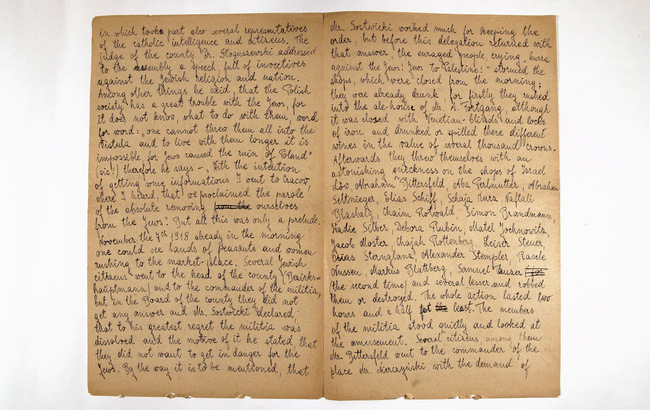 in which tooke part also several representatives
of the catholic intelligence and citizens. The
judge of the county Dr. Stoguszewski addressed
to the assembly a speech, full of invectives
against the Jewish religion and nation.
Among other things he said, that the Polish
society has a great trouble with the Jews, for
it does not know, what to do with them, word
for word:„ one cannot threw them all into the
Vistula and to live with them longer it is
impossible for Jews caused the ruin of Poland"
(sic!) therefore he says –. With the intention
of getting some informations I went to Cracow
where I heard, that we proclaimed the parole
of the absolute removing ourselves
from the Jews! But all this was only a prelude.
November the 7th 1918 already in the morning
one could see bands of peasants and women
rushing to the market-place. Several Jewish
citizens went to the head of the county (Bezirks=
hauptmann) and to the commander of the militia,
but in the Board of the county they did not
get any answer and Mr. Sostwicki declared,
that to his greatest regret the militia was
dissolved and the motive of it he stated, that
they did not want to get in danger for the
Jews. By the way it is to be mentioned, that
Mr. Sostwicki worked much for keeping the
order, but before this delegation returned with
that answer, the enraged people crying „hurra
against the Jews! Jews to Palestine!" stormed the
shops, which were closed from the morning;
they were already drunk for firstly they rushed
into the ale-house of Mr. N. Fortgang, although
it was closed with Venetian-blinds and locks
of iron and drunked or spilled there different
wines in the value of several thousand crowns.
Afterwards they threw themselves with an
astonishing quickness on the shops of Israel
Löw, Abraham Bittersfeld, Aba Perlmutter, Abraham
Seltnieger, Elias Schiff, Schaja Nura, Naftali
Blasbalg, Chaim Rotwald, Simon Brandmann,
Nadie Silber, Debora Rubin, Matel Jochnovits,
Jacob Moster, Chajah Rottenberg, Leiser Steuer,
Osias Sternglanz, Alexander Stempler, Racele
Nussen, Markus Blattberg, Samuel Pauser
the second time) and several lesser and robbed
them or destroyed. The whole action lasted two
hours and a half at least. The members
of the militia stood quietly and looked at
the amusement. Several citizens among them
Mr. Bittersfeld went to the commander of the
place Mr. with the demand of